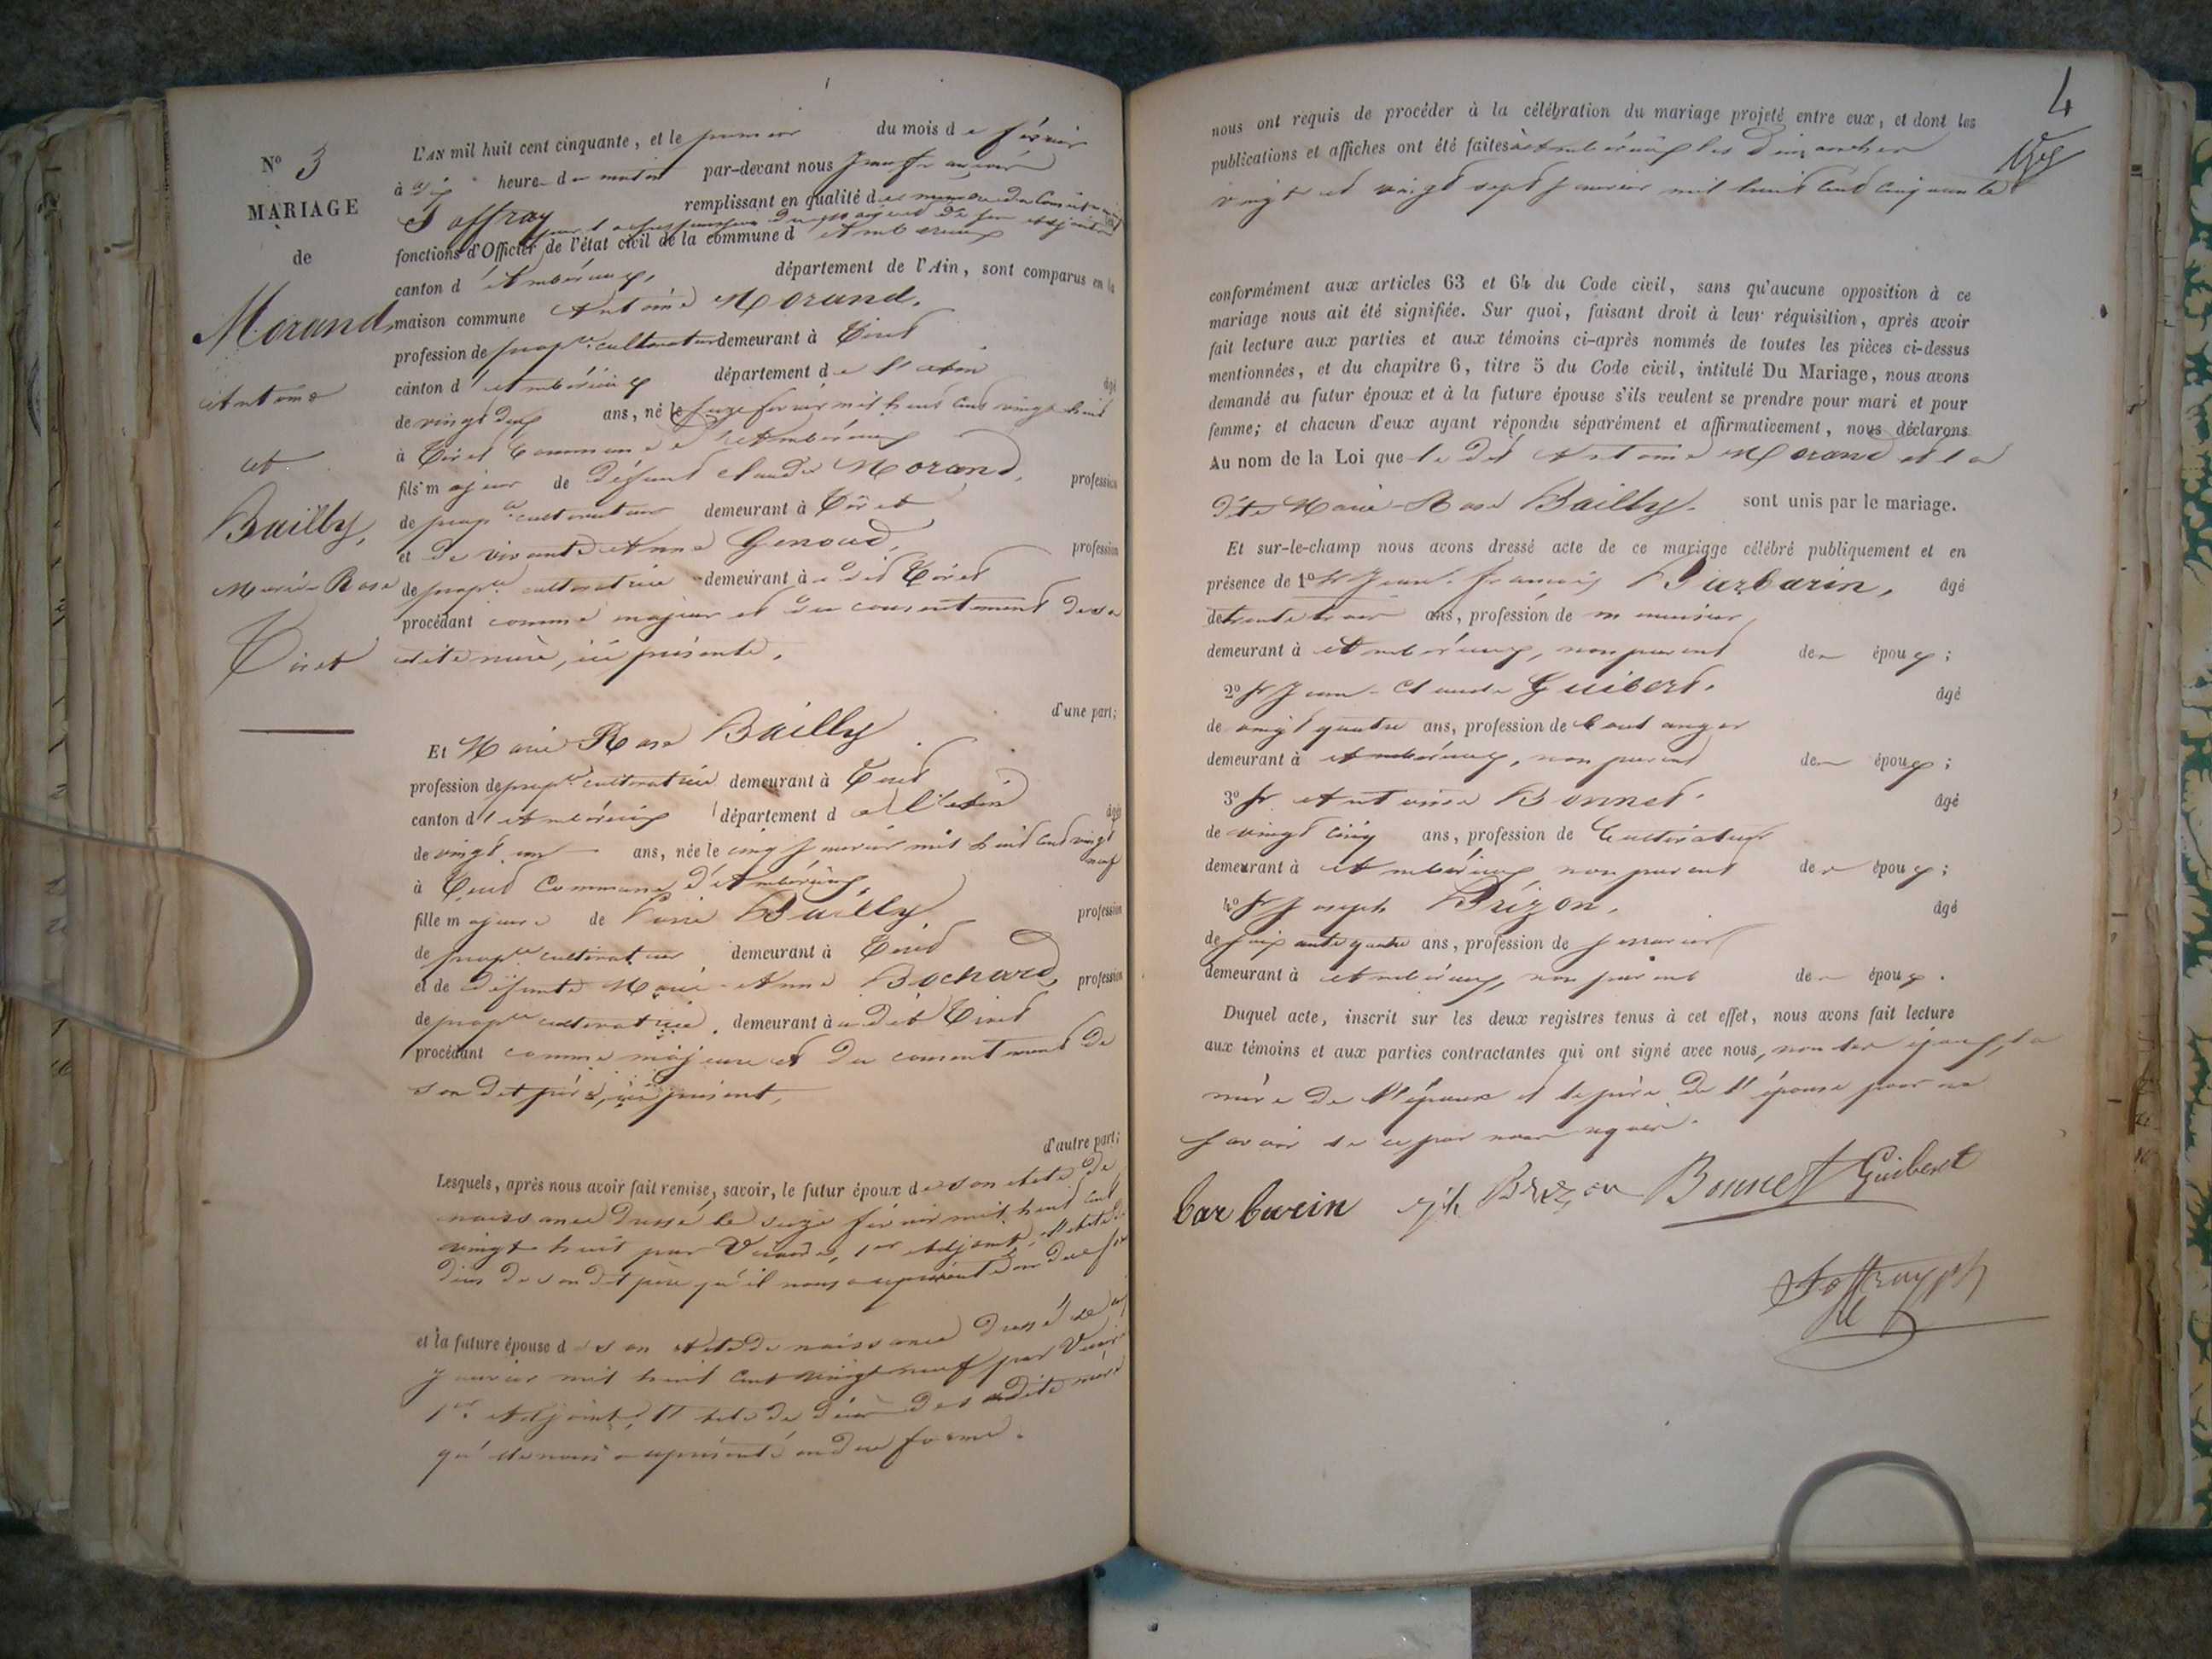 N° 3
MARIAGE
de
Morand
Antoine
et
Bailly,
Marie-Rose
Tiret
L'AN mil huit cent cinquante, et le premier du mois de février
à dix heures du matin par-devant nous Jean françois
Joffray remplissant en qualité de membre du Conseil
fonctions d'Officier de l'état civil de la commune d'Ambérieux
canton d'Ambérieux, département de l'Ain, sont comparus en la
maison commune Antoine Morand.
profession de prop.re cultivateur demeurant à Tiret
canton d'Ambérieux département de l'Ain âgé
de vingt deux ans, né le seize février mil huit cent vingt huit
à Tiret Commune d'Ambérieux
fils majeur de défunt Claude Morand, profession
de prop.re cultivateur demeurant à Tiret
et de vivante Anne Genoud, profession
de prop.re cultivatrice demeurant à dit Tiret
procédant comme majeur et du consentement de sa
dite mère, ici présente.
d'une part;
Et Marie Rose Bailly
profession de prop.re cultivatrice demeurant à Tiret
canton d'Ambérieux département de l'Ain âgée
de vingt un ans, née le cinq janvier mil huit cent vingt neuf
à Tiret Commune d'Ambérieux,
fille majeure de Bailly profession
de prop.re cultivateur demeurant à Tiret
et de défunte Marie-Anne Bochard, profession
de prop.re cultivatrice. demeurant au dit Tiret
procédant comme majeure et du consentement de
son dit père, ici présent,
d'autre part;
Lesquels, après nous avoir fait remise, savoir, le futur époux de son acte de
naissance dressé le seize février mil huit cent
vingt huit par 1er Adjoint, l'acte de
décès de son dit père qu'il nous a représenté en due
et la future épouse de son acte de naissance dressé le
janvier mil huit cent vingt neuf par
1er Adjoint, l'acte de décès de sa dite mère
qu'elle nous a représenté en due forme.
4
nous ont requis de procéder à la célébration du mariage projeté entre eux, et dont les
publications et affiches ont été faites à Ambérieux les Dimanches
vingt et vingt sept janvier mil huit cent cinquante
conformément aux articles 63 et 64 du Code civil, sans qu'aucune opposition à ce
mariage nous ait été signifiée. Sur quoi, faisant droit à leur réquisition, après avoir
fait lecture aux parties et aux témoins ci-après nommés de toutes les pièces ci-dessus
mentionnées, et du chapitre 6, titre 5 du Code civil, intitulé Du Mariage, nous avons
demandé au futur époux et à la future épouse s'ils veulent se prendre pour mari et pour
femme; et chacun d'eux ayant répondu séparément et affirmativement, nous déclarons
Au nom de la Loi que le dit Antoine Morand et la
dite Marie-Rose Bailly. sont unis par le mariage.
Et sur-le-champ nous avons dressé acte de ce mariage célébré publiquement et en
présence de 1° Sr Jean-françois Barbarin, âgé
de trente trois ans, profession de menuisier,
demeurant à Ambérieux, non parent des époux;
2° Sr Jean-Claude Guibert. âgé
de vingt quatre ans, profession de boulanger
demeurant à Ambérieux, non parent des époux;
3° Sr Antoine Bonnet. âgé
de vingt cinq ans, profession de Cultivateur
demeurant à Ambérieux, non parent des époux;
4° Sr Joseph Brizon, âgé
de soixante quatre ans, profession de serrurier
demeurant à Ambérieux, non parent des époux.
Duquel acte, inscrit sur les deux registres tenus à cet effet, nous avons fait lecture
aux témoins et aux parties contractantes qui ont signé avec nous, non les époux, la
mère de l'époux et le père de l'épouse pour ne
savoir de ce par nous requis.
barbarin jph Brizon Bonnet Guibert
Joffray